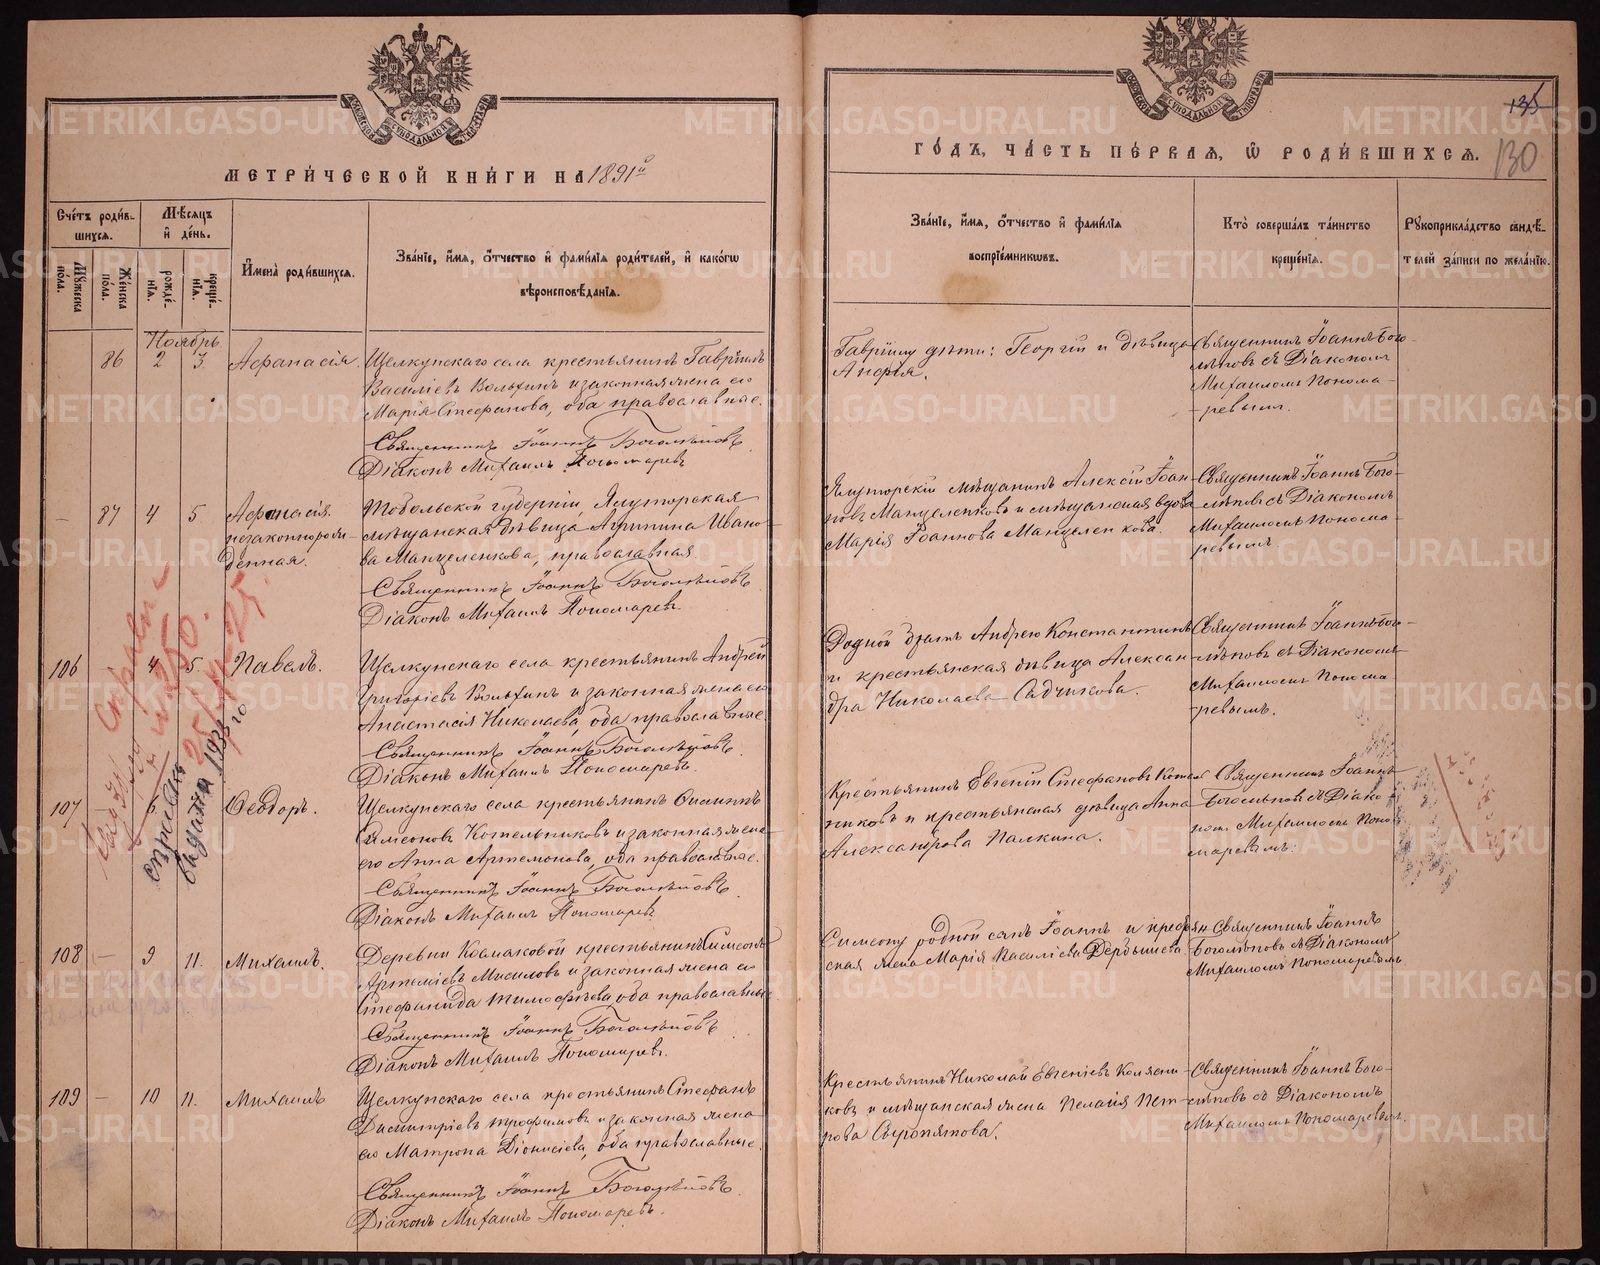 МЕТРИ́ЧЕСКОЙ КНИ́ГИ НА 1891й
Сче́тъ роди́в-
шихся.
Мѣ́сяцъ
и҆ де́нь.
И҆мена̀ роди́вшихся.
Зва́нїе, и҆́мя, ѻ҆́тчество и҆ фами́лїя роди́телей, и҆ како́гѡ
вѣроисповѣ́данїя.
Мꙋ́жеска
по́ла.
Же́нска
по́ла.
рожде́-
нїѧ.
креще́-
нїѧ.
Ноябрь
86 2 3 Афанасія.
Щелкунскаго села крестьянинъ Гавріилъ
Василіевъ Вольхинъ и законная жена его
Марія Стефанова, оба православные.
Священникъ Іоаннъ Боголѣповъ
Діаконъ Михаилъ Пономаревъ
– 87 4 5 Афанасія
незаконнорож-
денная.
Тобольской губерніи, Ялуторская
мѣщанская дѣвица Агрипина Ивано-
ва Манцеленкова, православная.
Священникъ Іоаннъ Боголѣповъ
Діаконъ Михаилъ Пономаревъ
106 4 5 Павелъ.
Щелкунскаго села крестьянинъ Андрей
Григоріевъ Вольхинъ и законная жена его
Анастасія Николаева, оба православные.
Священникъ Іоаннъ Боголѣповъ
Діаконъ Михаилъ Пономаревъ.
107 – 6 Ѳеодоръ.
Щелкунскаго села крестьянинъ
Симеоновъ Котельниковъ и законная жена
его Анна Артемонова, оба православные.
Священникъ Іоаннъ Боголѣповъ
Діаконъ Михаилъ Пономаревъ
108 – 9 11. Михаилъ.
Деревни Космаковой крестьянинъ Симеонъ
Артеміевъ и законная жена его
Стефанида Тимофѣева, оба православные.
Священникъ Іоаннъ Боголѣповъ
Діаконъ Михаилъ Пономаревъ.
109 – 10 11. Михаилъ
Щелкунскаго села крестьянинъ Стефанъ
Димитріевъ Трофимовъ и законная жена
его Матрона Діонисіева, оба православные.
Священникъ Іоаннъ Боголѣповъ
Діаконъ Михаилъ Пономаревъ.
выдана 1933 го
135
130
ГО́ДЪ, ЧА́СТЬ ПЕ́РВАЯ, Ѡ҆ РОДИ́ВШИХСЯ.
Зва́нїе, и҆́мя, ѻ҆́тчество и҆ фами́лїя
воспрїе́мникѡвъ.
Кто̀ соверша́лъ та́инство
креще́нїя.
Рꙋкоприкла́дство свидѣ́-
телей за́писи по жела́нїю.
Гавріилу дѣти: Георгій и дѣвица
Анфія.
Священникъ Іоаннъ Бого-
лѣповъ съ Діакономъ
Михаиломъ Понома-
ревымъ.
Ялуторскій мѣщанинъ Алексій Іоан-
новъ Манцеленковъ и мѣщанская вдова
Марія Іоаннова Манцеленкова.
Священникъ Іоаннъ Бого-
лѣповъ съ Діакономъ
Михаиломъ Понома-
ревымъ
Родной братъ Андрею Константинъ
и крестьянская дѣвица Алексан-
дра Николаева Садчикова.
Священникъ Іоаннъ Бого-
лѣповъ съ Діакономъ
Михаиломъ Понома-
ревымъ.
Крестьянинъ Евгеній Стефановъ Котель-
никовъ и крестьянская дѣвица Анна
Александрова Палкина.
Священникъ Іоаннъ
Боголѣповъ съ Діако-
номъ Михаиломъ Поно-
маревымъ.
Симеону родной сынъ Іоаннъ и крестьян-
ская жена Марія Василіева Дербышева
Священникъ Іоаннъ
Боголѣповъ съ Діакономъ
Михаиломъ Пономаревымъ
Крестьянинъ Николай Евгеніевъ Колясни-
ковъ и мѣщанская жена Пелагія Пет-
рова Сыропятова.
Священникъ Іоаннъ Бого-
лѣповъ съ Діакономъ
Михаиломъ Пономаревымъ.
METRIKI.GASO-URAL.RU